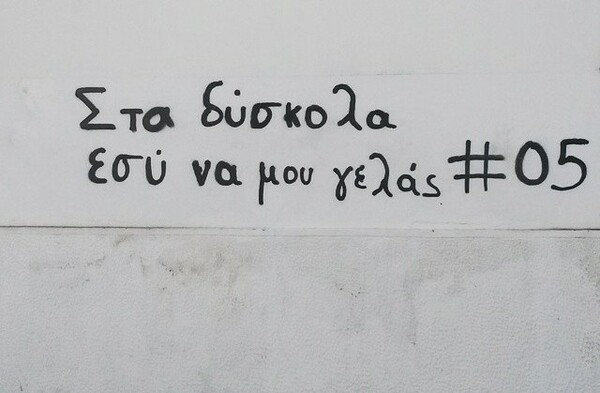 Στα δύσκολα
εσύ να μου γελάς #05